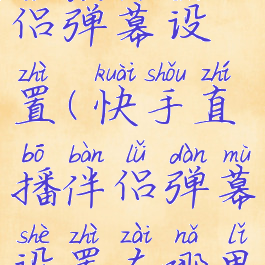 侣弹幕设
zhì kuài shǒu zhí
置(快手直
bō bàn lǚ dàn mù
播伴侣弹幕
shè zhì zài nǎ lǐ
设置在哪里